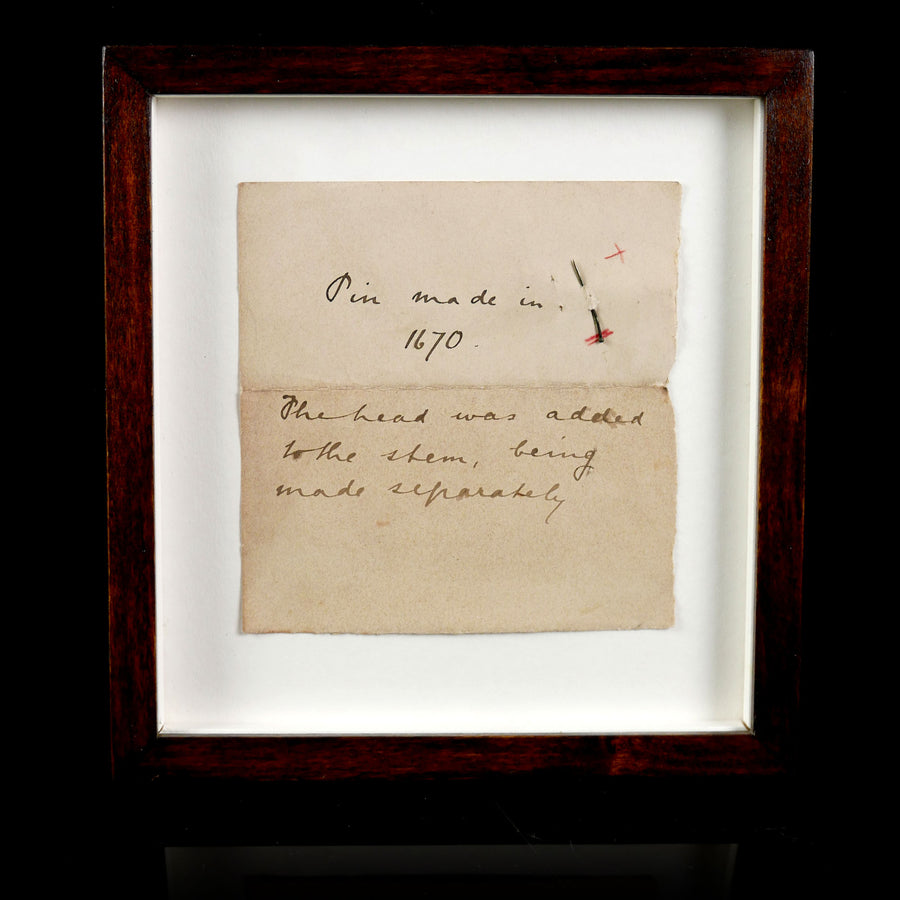 Pin made in.
1670.
The head was added
to the stem, being
made separately